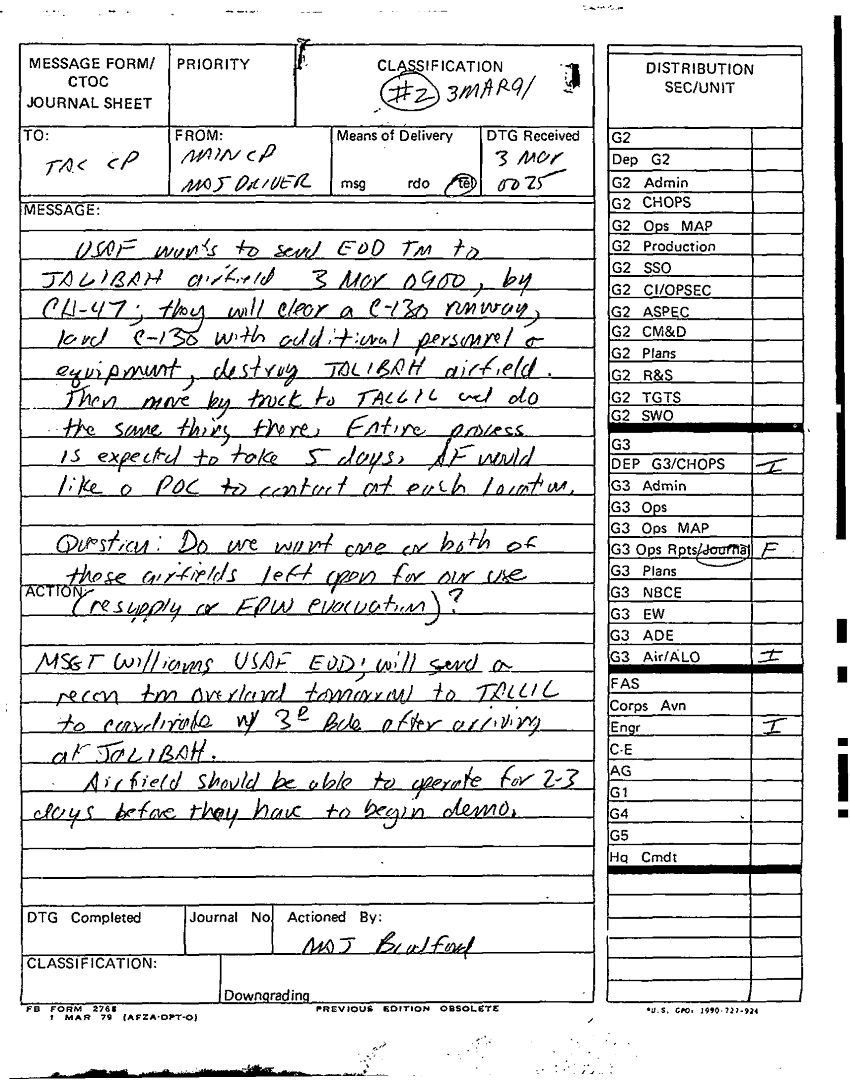 MESSAGE FORM/
CTOC
JOURNAL SHEET
PRIORITY
CLASSIFICATION
#2 3MAR91
TO:
TAC CP
FROM:
MAIN CP
MAJ DRIVER
Means of Delivery
msg rdo tel
DTG Received
3 Mar
0025
MESSAGE:
USAF wants to send EOD TM to
JALIBAH airfield 3 Mar 0900, by
CH-47; they will clear a C-130 runway,
land C-130 with additional personnel &
equipment, destroy JALIBAH airfield.
Then move by truck to TALLIL and do
the same thing there. Entire process
is expected to take 5 days. AF would
like a POC to contact at each location.
Question: Do we want one or both of
these airfields left open for our use
ACTION:
(resupply or EPW evacuation)?
MSGT Williams USAF EOD; will send a
recon tm overland tomorrow to TALLIL
to coordinate w/ 3D Bde after arriving
at JALIBAH.
Airfield should be able to operate for 2-3
days before they have to begin demo.
DTG Completed
Journal No
Actioned By:
MAJ Bradford
CLASSIFICATION:
Downgrading
FB FORM 2768
1 MAR 79 (AFZA-DPT-O)
PREVIOUS EDITION OBSOLETE
DISTRIBUTION
SEC/UNIT
G2
Dep G2
G2 Admin
G2 CHOPS
G2 Ops MAP
G2 Production
G2 SSO
G2 CI/OPSEC
G2 ASPEC
G2 CM&D
G2 Plans
G2 R&S
G2 TGTS
G2 SWO
G3
DEP G3/CHOPS I
G3 Admin
G3 Ops
G3 Ops MAP
G3 Ops Rpts/Journal F
G3 Plans
G3 NBCE
G3 EW
G3 ADE
G3 Air/ALO I
FAS
Corps Avn
Engr I
C-E
AG
G1
G4
G5
Hq Cmdt
*U.S. GPO: 1990-727-924